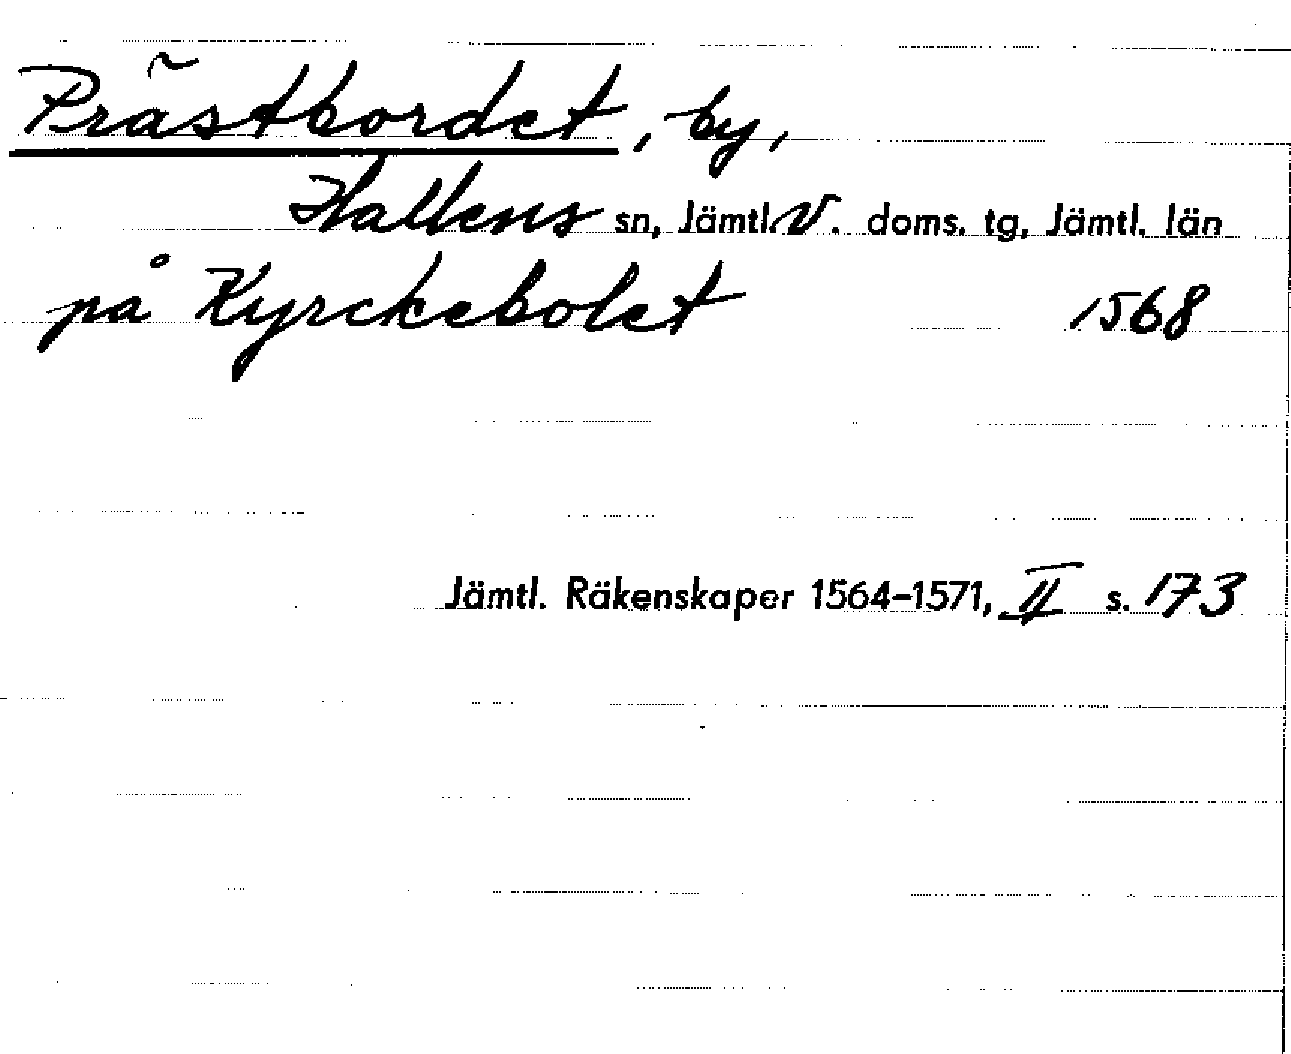 Prästbordet, by,
Hallens sn, Jämtl. V. doms. tg, Jämtl. län
på Kyrckebolet 1568
Jämtl. Räkenskaper 1564-1571, II s. 173